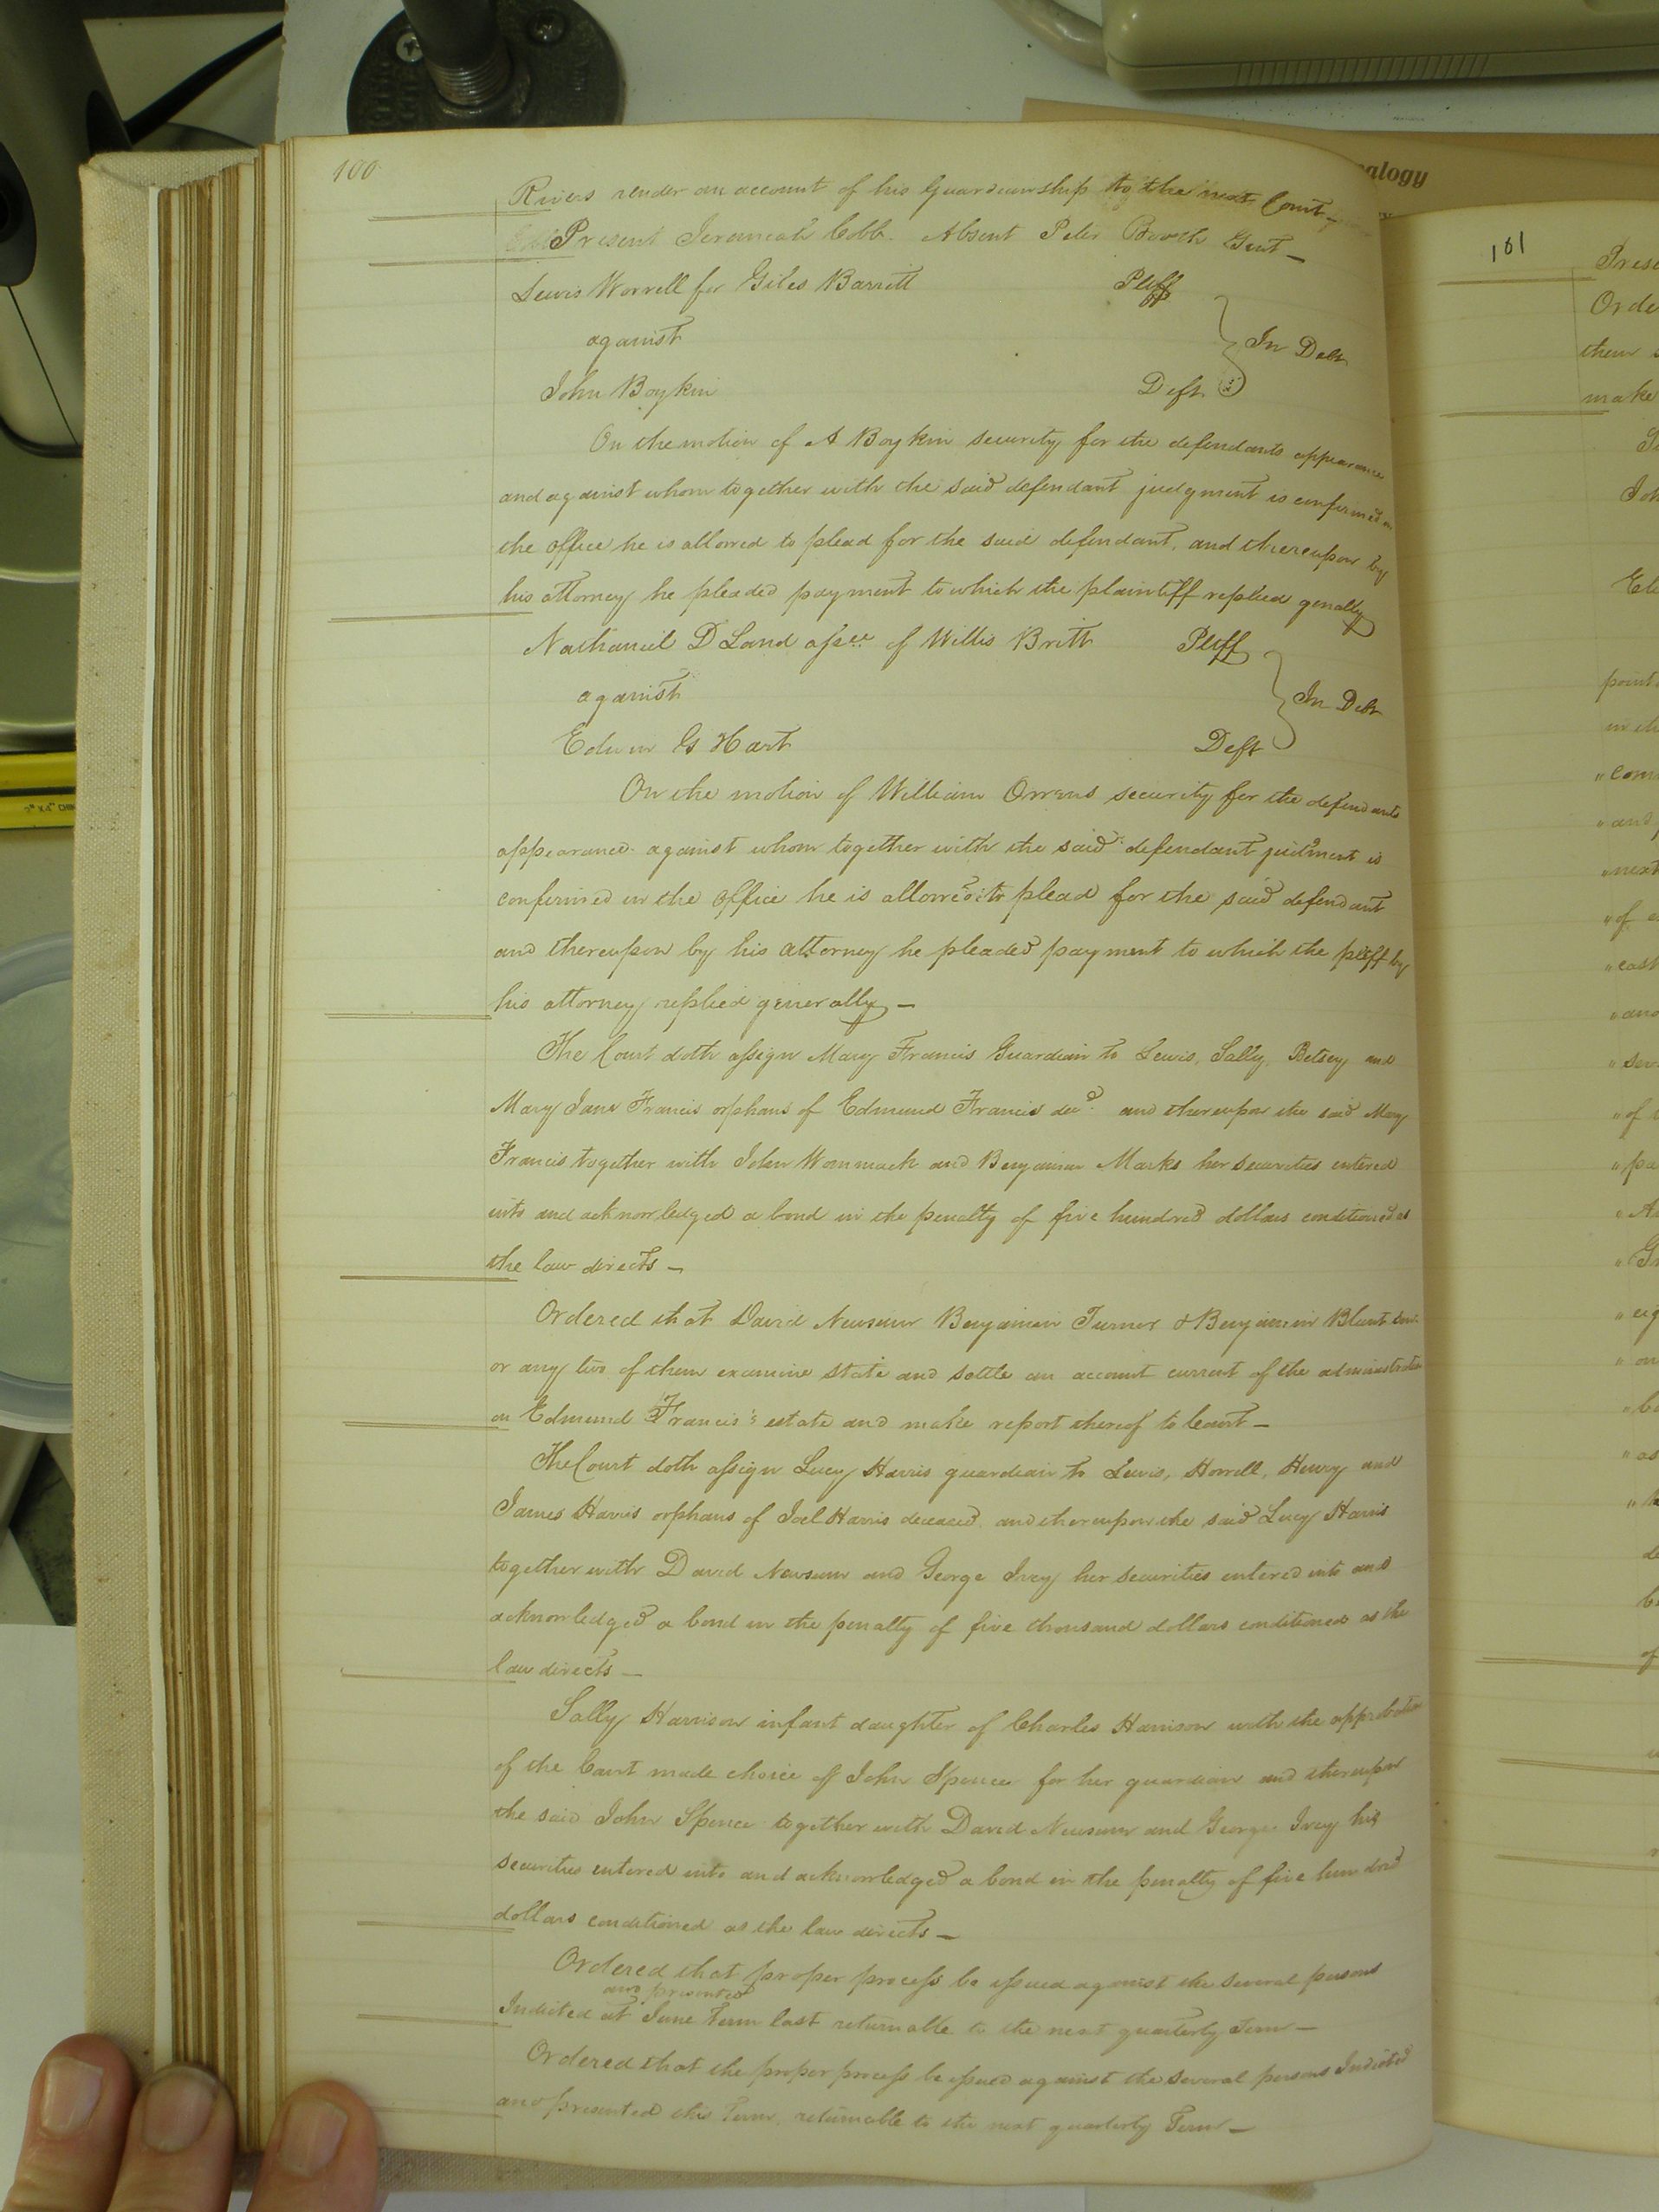 100
Rivers render an account of his Guardianship to the next Court —
Present Jeremiah Cobb. Absent Peter Booth Gent —
Lewis Worrell for Giles Barrett Pltff
against In Debt
John Boykin Deft
On the motion of A Boykin security for the defendants appearance
and against whom together with the said defendant judgment is confirmed in
the office he is allowed to plead for the said defendant, and thereupon by
his attorney he pleaded payment to which the plaintiff replied genally
Nathaniel D Land assee of Willis Britt Pltff
against In Debt
Edwin G Hart Deft
On the motion of William security for the defendants
appearance against whom together with the said defendant judment is
confirmed in the office he is allowed to plead for the said defendant
and thereupon by his attorney he pleaded payment to which the pltff by
his attorney replied generally —
The Court doth assign Mary Francis Guardian to Lewis, Sally, Betsey and
Mary Jane Francis orphans of Edmund Francis decd. and thereupon the said Mary
Francis together with John Wommack and Benjamin Marks her securities entered
into and acknowledged a bond in the penalty of five hundred dollars conditioned as
the law directs —
Ordered that David Newsum Benjamin Turner & Benjamin Blunt Senr.
or any two of them examine state and settle an account current of the administration
on Edmund Francis's estate and make report thereof to Court —
The Court doth assign Lucy Harris guardian to Lewis, Howell, Henry and
James Harris orphans of Joel Harris deceased. and thereupon the said Lucy Harris
together with David Newsum and George Ivey her securities entered into and
acknowledged a bond in the penalty of five thousand dollars conditioned as the
law directs —
Sally Harrison infant daughter of Charles Harrison with the approbation
of the Court made choice of John Spence for her guardian and thereupon
the said John Spence together with David Newsum and George Ivey his
securities entered into and acknowledged a bond in the penalty of five hundred
dollars conditioned as the law directs —
Ordered that proper process be issued against the several persons
and presented
Indicted at June Term last returnable to the next quarterly Term —
Ordered that the proper process be issued against the several persons Indicted
and presented this Term, returnable to the next quarterly Term —
alogy
101
Orde
them
make
Joh
point
" com
" and
" next
" of
" cash
" and
" of
" pa
" on
" as
of